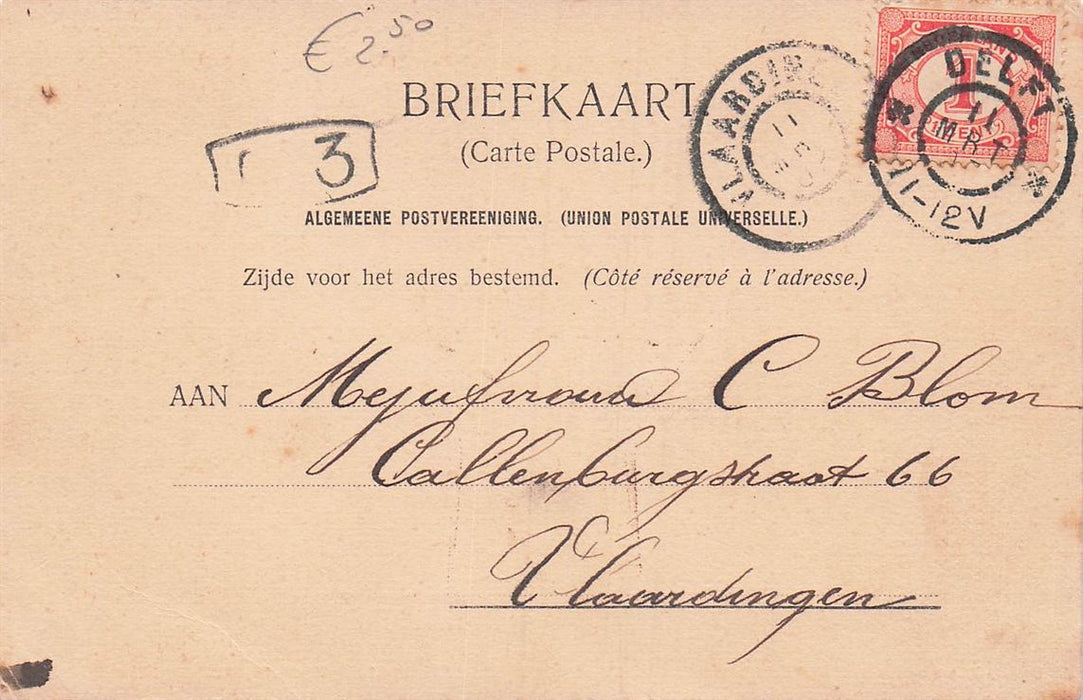 € 2.50
BRIEFKAART
(Carte Postale.)
3
ALGEMEENE POSTVEREENIGING. (UNION POSTALE UNIVERSELLE.)
Zijde voor het adres bestemd. (Côté réservé à l'adresse.)
VLAARDIN
11
DELFT
11
MRT
11-12V
1
CENT
AAN Mejufvrouw C Blom
Callenburgstraat 66
Vlaardingen